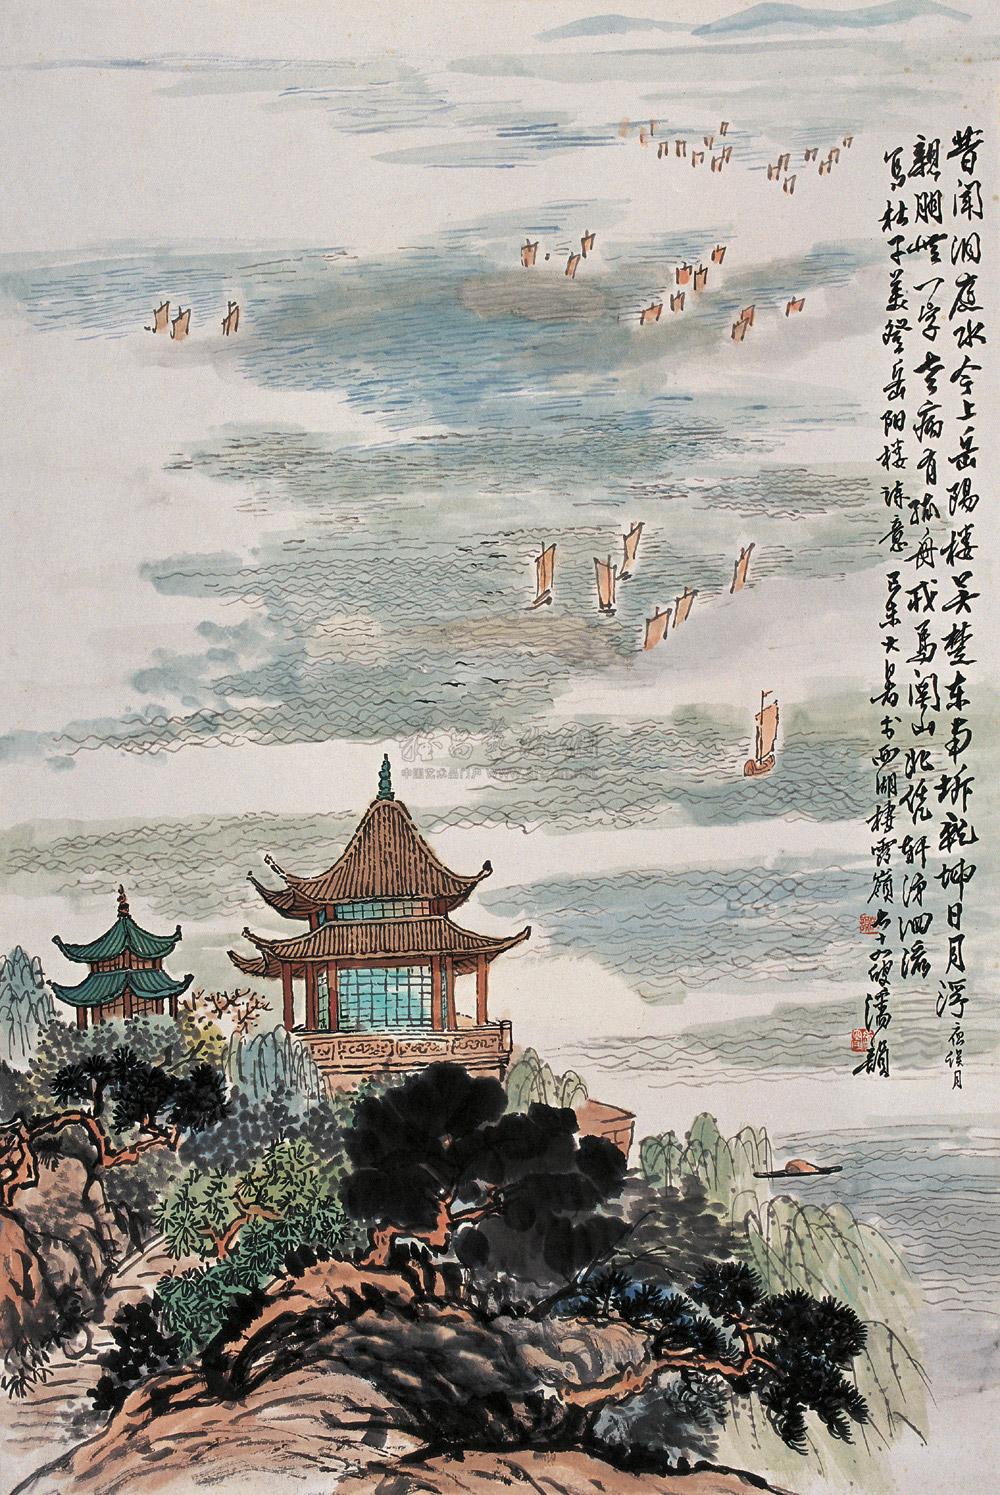 昔闻洞庭水今上岳陽楼吴楚东南坼乾坤日月浮 夜误月
親朋無一字老病有孤舟戎馬関山北凭軒涕泗流
写杜子美登岳阳楼诗意 己未大暑于西湖棲霞嶺 七十 叟潘韻
中国艺术品门户